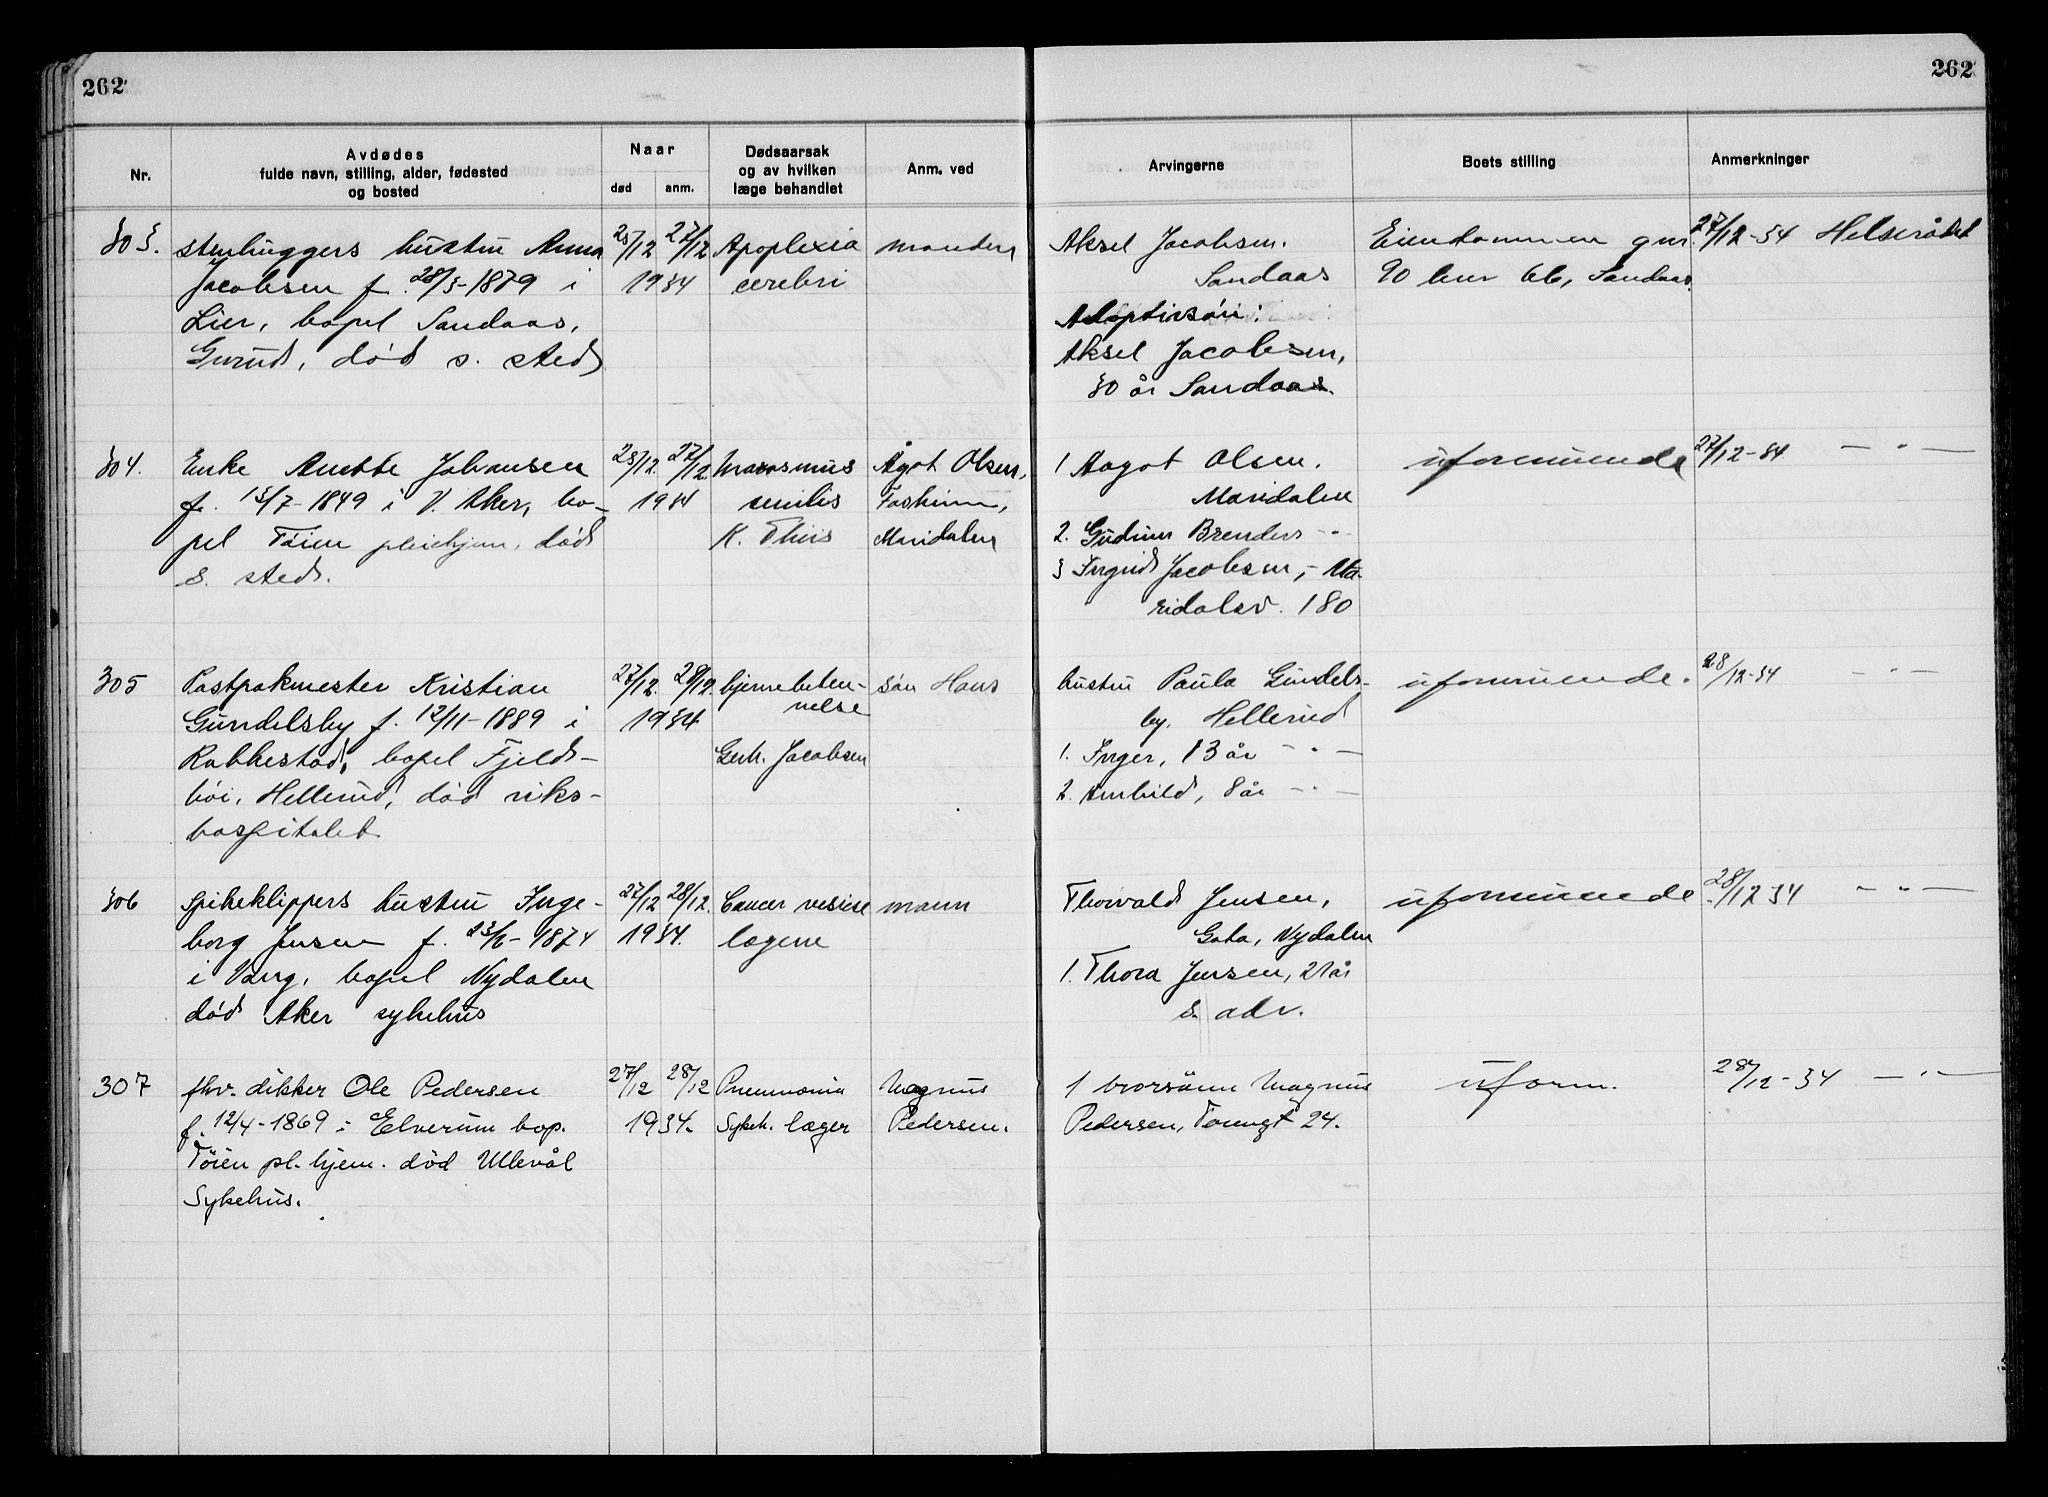 262
262
Nr.
Avdødes
fulde navn, stilling, alder, fødested
og bosted
Naar
død
anm.
Dødsaarsak
og av hvilken
læge behandlet
Anm. ved
Arvingerne
Boets stilling
Anmerkninger
303. stenhuggers hustru Anna
Jacobsen f. 28/3-1879 i
Lier, bopel Sandaas,
Grorud, död s. sted
/12 27/12
1934
Apoplexia
cerebri
manden
Aksel Jacobsen.
Sandaas
Adoptivsön:
Aksel Jacobsen,
30 år Sandaas.
Eiendommen gnr.
90 bnr 66, Sandaas.
27/12-34 Helserådet
304. Enke Anette Johansen
f. 13/7-1849 i V. Aker, bo-
pel Töien pleiehjem, död
s. sted.
23/12. 27/12.
1934
Marasmus
senilis
K. Thiis
Ågot Olsen,
Maridalen
1 Aagot Olsen.
Maridalen
2. Gudrun Brenders -"-
3 Ingrid Jacobsen, - Ma-
ridalsv. 180
uformuende
27/12-34 -"-
305 Postpakmester Kristian
Gundelsby f. 12/11-1889 i
Rakkestad, bopel Fjeld-
höi, Hellerud, död riks-
hospitalet.
27/12. 28/12.
1934
hjernebeten-
nelse
Gerh. Jacobsen
sön Hans
hustru Paula Gundels-
by. Hellerud
1. Inger, 13 år -"-
2. , 8 år -"-
uformuende.
28/12-34 -"-
306 Spikeklippers hustru Inge-
borg Jensen f. 23/6-1874
i Vang, bopel Nydalen
död Aker sykehus
27/12 28/12.
1934.
Cancer vesicae
lægerne
mann
Thorvald Jensen,
Nydalen
1. Thora Jensen, 21 år
s. adr.
uformuende
28/12 34 -"-
307 fhv. dikker Ole Pedersen
f. 12/4-1869 i Elverum bop.
Töien pl. hjem. död Ullevål
Sykehus.
27/12 28/12
1934.
Pneumonia
Sykeh. læger
Magnus
Pedersen.
1 brorsönn Magnus
Pedersen, 24.
uform.
28/12-34 -"-